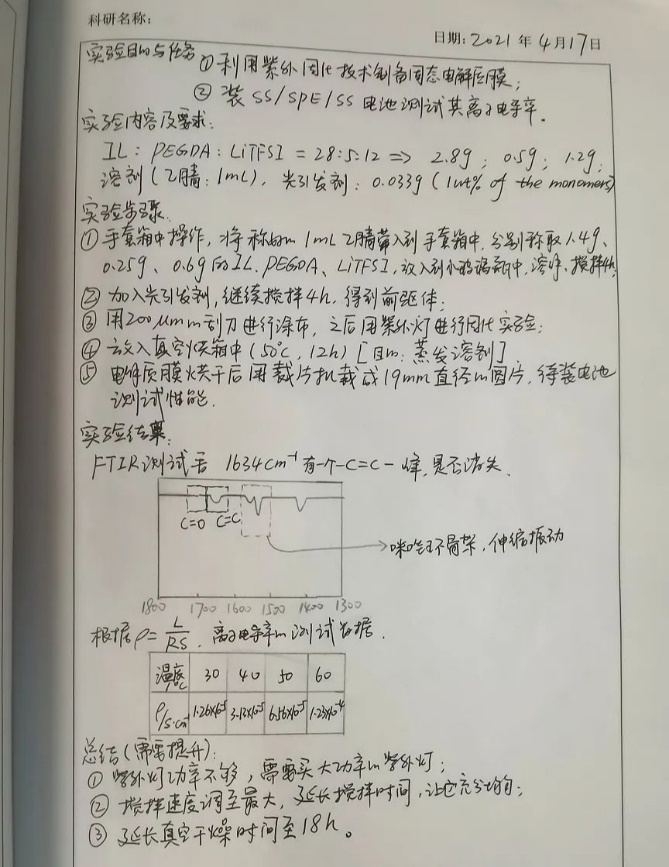 科研名称:
日期: 2021 年 4 月 17 日
实验目的与任务 ① 利用紫外固化技术制备固态电解质膜;
② 装 SS/SPE/SS 电池测试其离子电导率.
实验内容及要求:
IL : PEGDA : LiTFSI = 28:5:12 => 2.8g ; 0.5g ; 1.2g;
溶剂 (乙腈: 1mL), 光引发剂: 0.033g (1wt% of the monomers)
实验步骤:
① 手套箱中操作, 将称的 1mL 乙腈带入到手套箱中. 分别称取 1.4g、
0.25g、0.6g的IL、PEGDA、LiTFSI, 放入到小玻璃瓶中, 溶解、搅拌4h,
② 加入光引发剂, 继续搅拌4h, 得到前驱体;
③ 用200μm的刮刀进行涂布, 之后用紫外灯进行固化实验;
④ 放入真空烘箱中 (50℃, 12h) [目的: 蒸发溶剂]
⑤ 电解质膜烘干后用裁片机裁成19mm直径的圆片, 待装电池
测试性能.
实验结果:
FTIR测试看 1634cm⁻¹ 有一个-C=C-峰, 是否消失.
C=O C=C
咪唑环骨架, 伸缩振动
1800 1700 1600 1500 1400 1300
根据ρ= L/RS. 离子电导率的测试数据.
温度℃ 30 40 50 60
ρ/S·cm⁻¹ 1.26×10⁻⁵ 3.13×10⁻⁵ 6.56×10⁻⁵ 1.23×10⁻⁴
总结 (需要提升):
① 紫外灯功率不够, 需要买大功率的紫外灯;
② 搅拌速度调至最大, 延长搅拌时间, 让它充分均匀;
③ 延长真空干燥时间至18h。